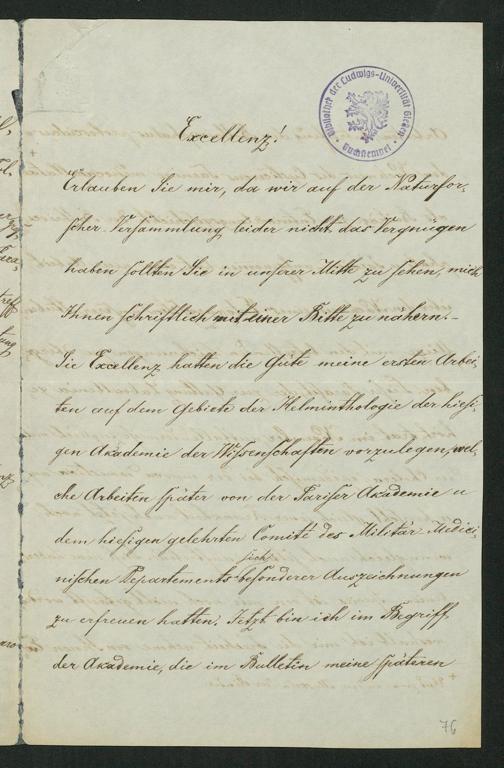 Bibliothek der Ludwigs-Universität Gießen
Buchstempel
Excellenz!
Erlauben Sie mir, da wir auf der Naturfor-
scher Versammlung leider nicht das Vergnügen
haben sollten Sie in unserer Mitte zu sehen, mich
Ihnen schriftlich mit einer Bitte zu nähern.-
Sie Excellenz hatten die Güte meine ersten Arbei-
ten auf dem Gebiete der Helminthologie der hiesi-
gen Akademie der Wissenschaften vorzulegen, wel-
che Arbeiten später von der Pariser Akademie u
dem hiesigen gelehrten Comité des Militär Medici-
sich
nischen Departements besonderer Auszeichnungen
zu erfreuen hatten. Jetzt bin ich im Begriff,
der Akademie, die im Bulletin meine späteren
76